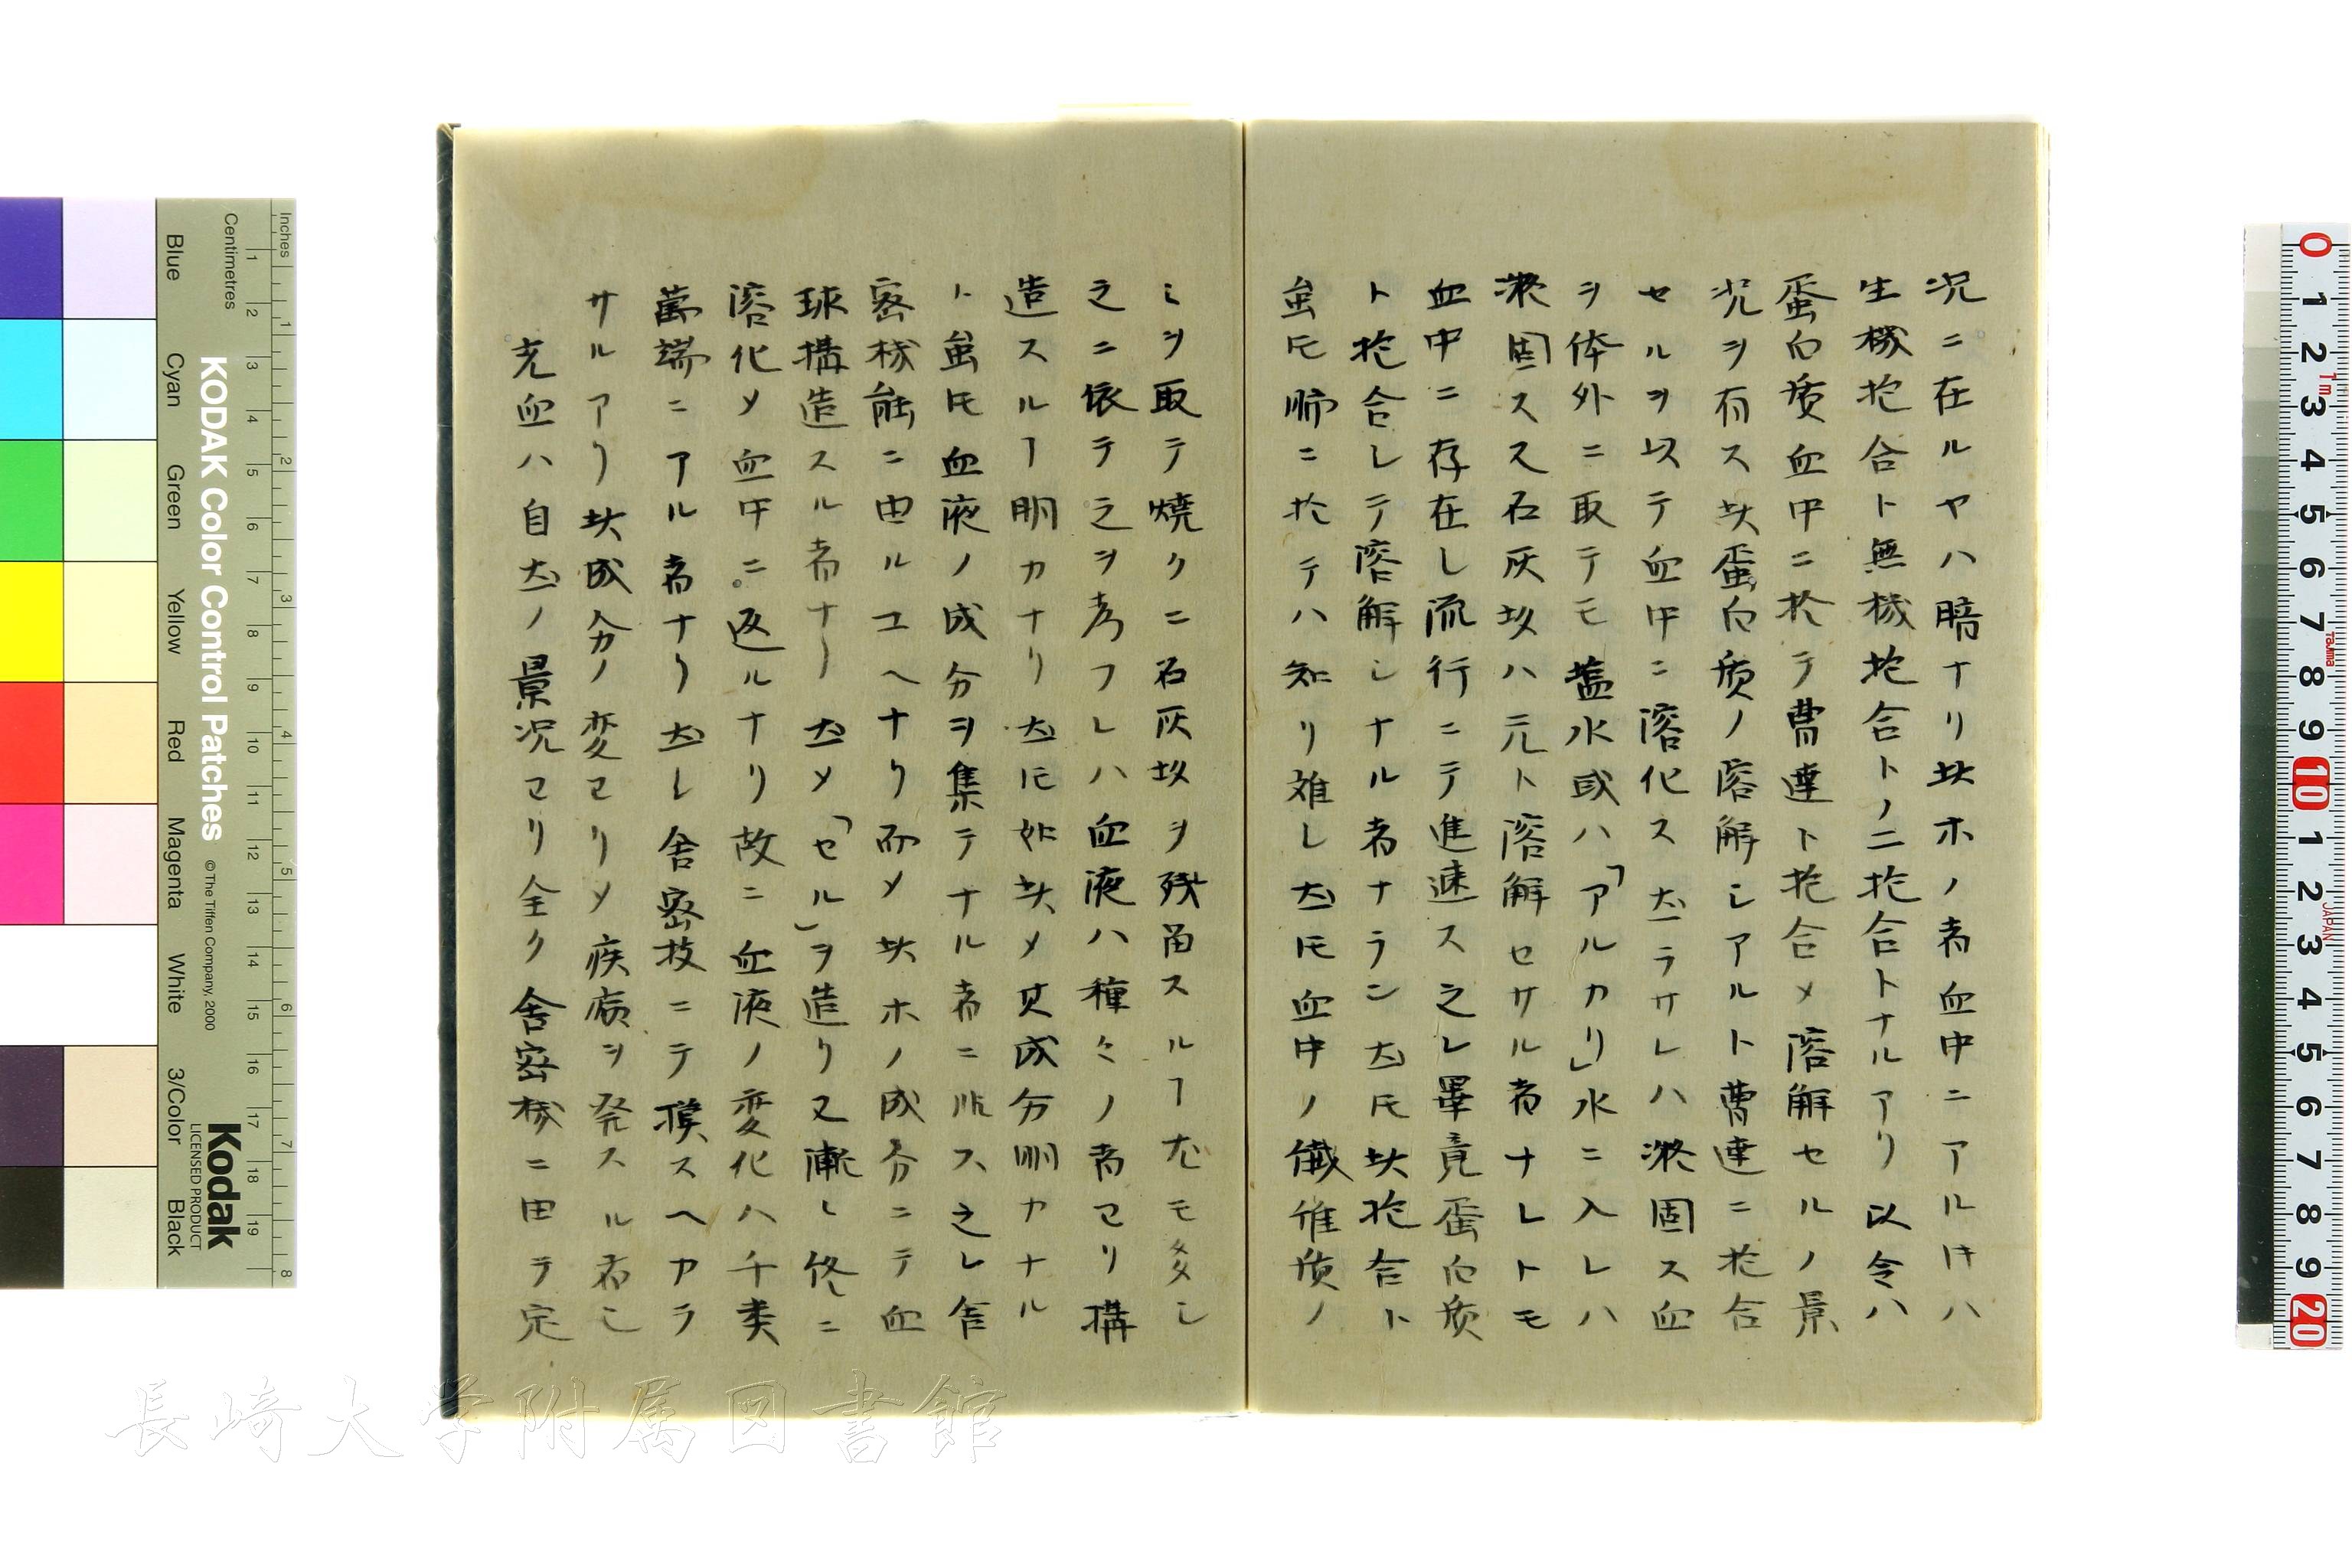 況ニ在ルヤハ暗ナリ此ホノ者血中ニアルキハ
生機抱合ト無機抱合トノ二抱合トナルアリ以令ハ
蛋白質血中ニ於テ曹達ト抱合メ溶解セルノ景
況ヲ有ス此蛋白質ノ溶解シアルト曹達ニ抱合
セルヲ以テ血中ニ溶化ス尓ラサレハ凝固ス血
ヲ体外ニ取テモ蓋水或ハ「アルカリ」水ニ入レハ
凝固スス又石灰坆ハ元ト溶解セサル者ナレトモ
血中ニ存在し流行ニテ進速ス之レ畢竟蛋白質
ト抱合レテ溶解シナル者ナラン尓圧此抱合ト
虽圧肺ニ於テハ知リ難し尓圧血中ノ繊維質ノ
ミヲ取テ焼クニ石灰坆ヲ残畄スルヿ尤モ多し
之ニ依テ之ヲ考フレハ血液ハ種々ノ者ヨリ構
造スルヿ明カナリ尓圧如此メ其成分明カナル
ト虽圧血液ノ成分ヲ集テナル者ニ非ス之レ舎
密機能ニ由ルユヘナリ而メ此ホノ成分ニテ血
球構造スル者ナリ尓メ「セル」ヲ造リ又漸し終ニ
溶化メ血中ニ返ルナリ故ニ血液ノ変化ハ千差
萬端ニアル者ナリ尓レ舎密技ニテ模スヘカラ
サルアリ此成分ノ変ヨリメ疾病ヲ発スル者し
充血ハ自尓ノ景況ヨリ全ク舎密機ニ由ラ定
長崎大学附属図書館
Inches
Centimetres
KODAK Color Control Patches
© The Tiffen Company, 2000
Kodak
LICENSED PRODUCT
Blue
Cyan
Green
Yellow
Red
Magenta
White
3/Color
Black